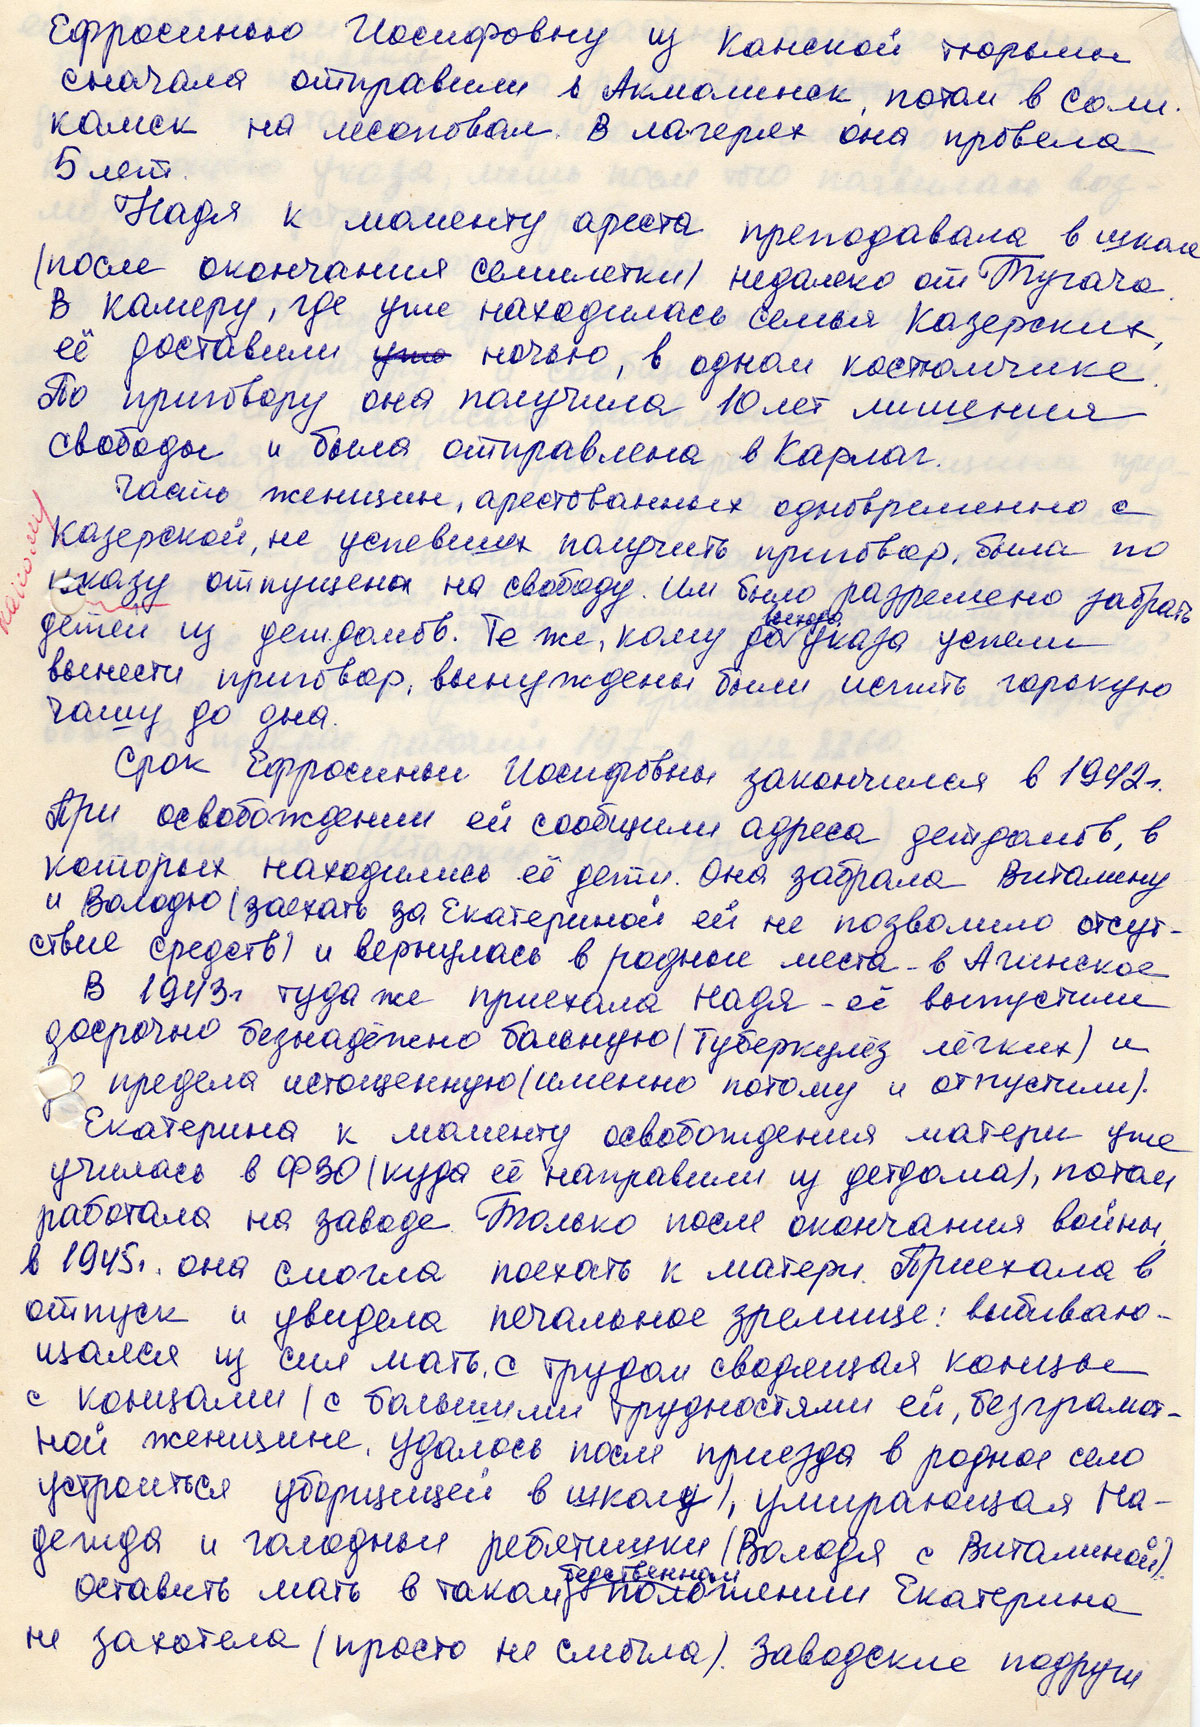 Ефросинью Иосифовну из Канской тюрьмы
сначала отправили в Акмолинск, потом в Соли-
камск на лесоповал. В лагерях она провела
5 лет.
Надя к моменту ареста преподавала в школе
(после окончания семилетки) недалеко от Тугача.
В камеру, где уже находилась семья Казерских,
её доставили уже ночью, в одном костюмчике.
По приговору она получила 10 лет лишения
свободы и была отправлена в Карлаг.
Часть женщин, арестованных одновременно с
Казерской, не успевших получить приговор, была по
какому
указу отпущена на свободу. Им было разрешено забрать
детей из детдомов. Те же, кому до выхода указа успели
вынести приговор, вынуждены были испить горькую
чашу до дна.
Срок Ефросиньи Иосифовны закончился в 1942 г.
При освобождении ей сообщили адреса детдомов, в
которых находились её дети. Она забрала Виталину
и Володю (заехать за Екатериной ей не позволило отсут-
ствие средств) и вернулась в родные места - в Агинское
В 1943 г туда же приехала Надя - её выпустили
досрочно безнадёжно больную (туберкулёз лёгких) и
до предела истощенную (именно потому и отпустили).
Екатерина к моменту освобождения матери уже
училась в ФЗО (куда её направили из детдома), потом
работала на заводе. Только после окончания войны,
в 1945 г. она смогла поехать к матери. Приехала в
отпуск и увидела печальное зрелище: выбиваю-
щаяся из сил мать, с трудом сводящая концы
с концами (с большими трудностями ей, безграмот-
ной женщине, удалось после приезда в родное село
устроиться уборщицей в школу), умирающая На-
дежда и голодные ребятишки (Володя с Виталиной).
Оставить мать в таком бедственном положении Екатерина
не захотела (просто не смогла). Заводские подруги